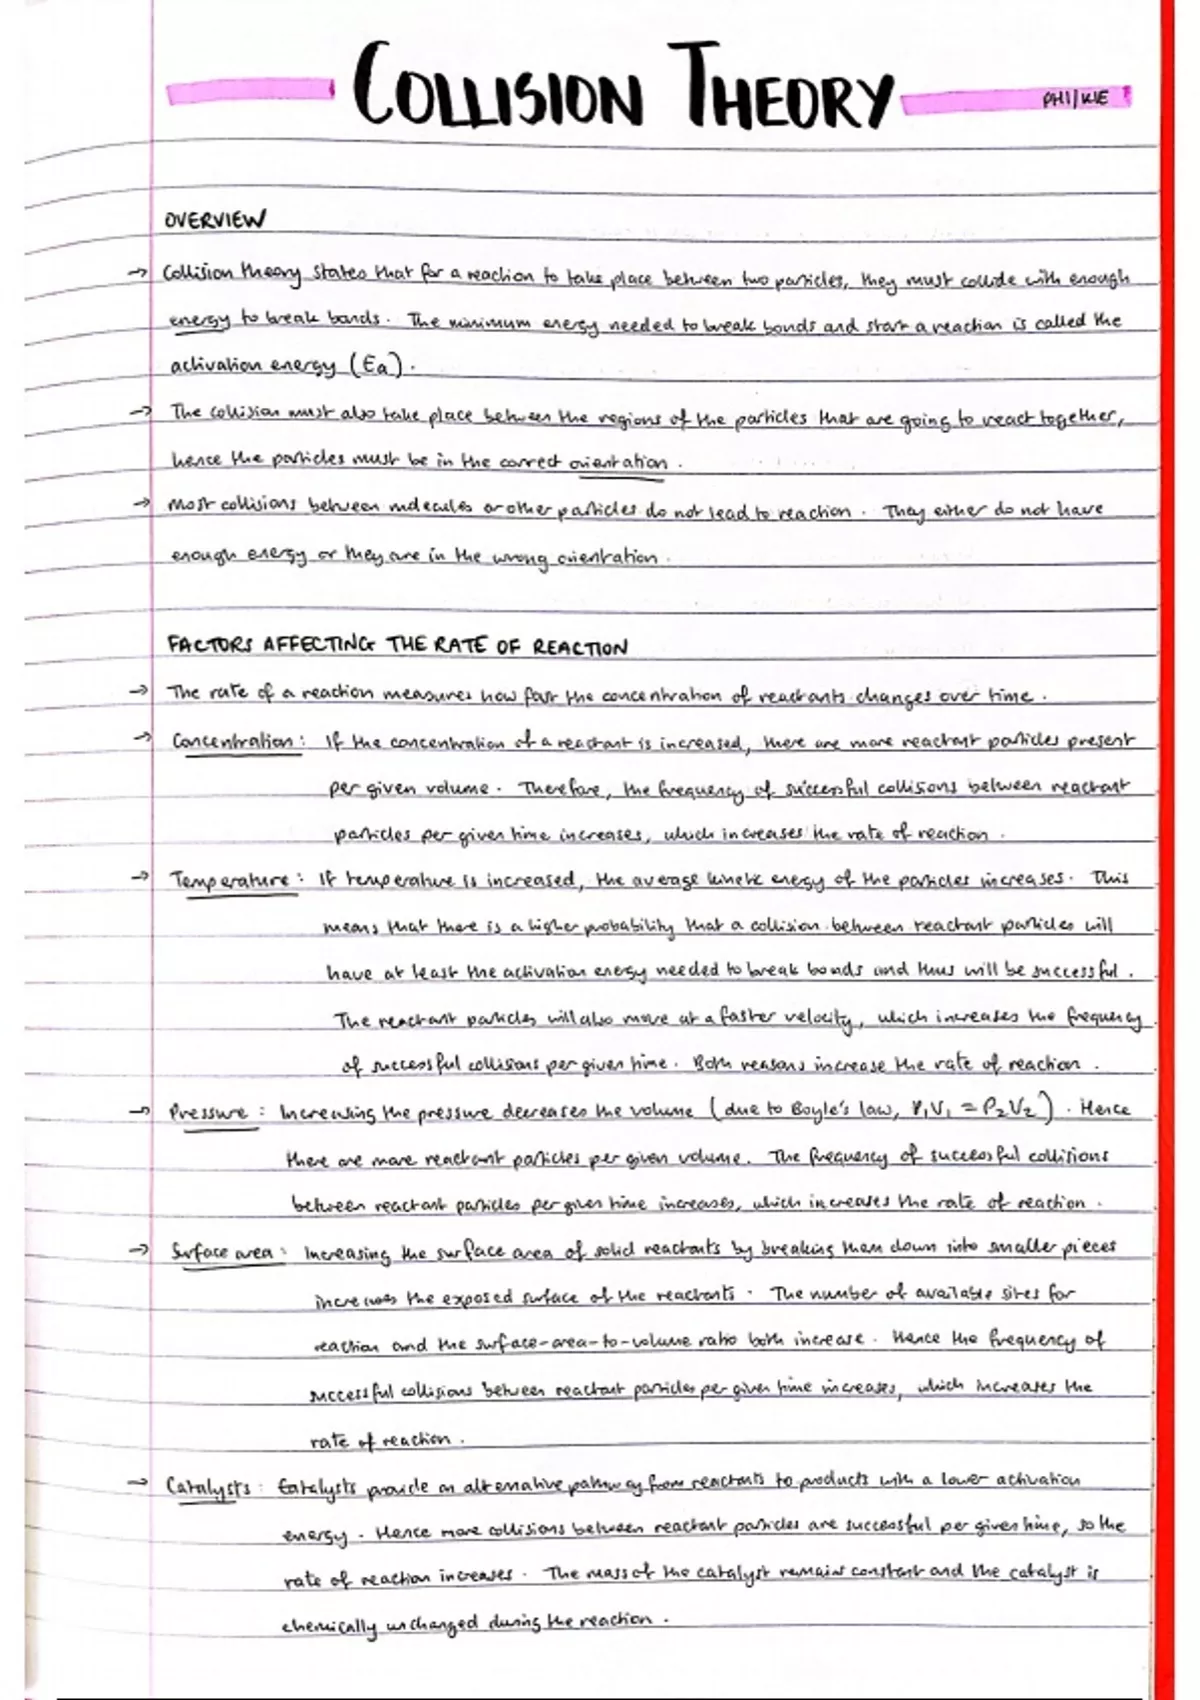 COLLISION THEORY
PHI/KIE
OVERVIEW
→ Collision theory states that for a reaction to take place between two particles, they must collide with enough
energy to break bonds. The minimum energy needed to break bonds and start a reaction is called the
activation energy (Ea).
→ The collision must also take place between the regions of the particles that are going to react together,
hence the particles must be in the correct orientation.
→ Most collisions between molecules or other particles do not lead to reaction. They either do not have
enough energy or they are in the wrong orientation.
FACTORS AFFECTING THE RATE OF REACTION
→ The rate of a reaction measures how fast the concentration of reactants changes over time.
→ Concentration: If the concentration of a reactant is increased, there are more reactant particles present
per given volume. Therefore, the frequency of successful collisions between reactant
particles per given time increases, which increases the rate of reaction.
→ Temperature: If temperature is increased, the average kinetic energy of the particles increases. This
means that there is a higher probability that a collision between reactant particles will
have at least the activation energy needed to break bonds and thus will be successful.
The reactant particles will also move at a faster velocity, which increases the frequency
of successful collisions per given time. Both reasons increase the rate of reaction.
→ Pressure: Increasing the pressure decreases the volume (due to Boyle's law, P₁V₁ = P₂V₂). Hence
there are more reactant particles per given volume. The frequency of successful collisions
between reactant particles per given time increases, which increases the rate of reaction.
→ Surface area: Increasing the surface area of solid reactants by breaking them down into smaller pieces
increases the exposed surface of the reactants. The number of available sites for
reaction and the surface-area-to-volume ratio both increase. Hence the frequency of
successful collisions between reactant particles per given time increases, which increases the
rate of reaction.
→ Catalysts: Catalysts provide an alternative pathway from reactants to products with a lower activation
energy. Hence more collisions between reactant particles are successful per given time, so the
rate of reaction increases. The mass of the catalyst remains constant and the catalyst is
chemically unchanged during the reaction.